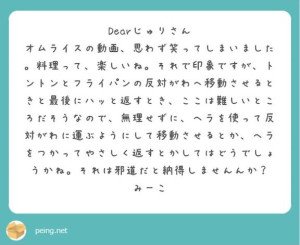 Dearじゅりさん
オムライスの動画、思わず笑ってしまいました
。料理って、楽しいね。それで印象ですが、ト
ントンとフライパンの反対がわへ移動させると
きと最後にハッと返すとき、ここは難しいとこ
ろだそうなので、無理せずに、ヘラを使って反
対がわに運ぶようにして移動させるとか、ヘラ
をつかってやさしく返すとかしてはどうでしょ
うかね。それは邪道だと納得しませんんか？
みーこ
peing.net